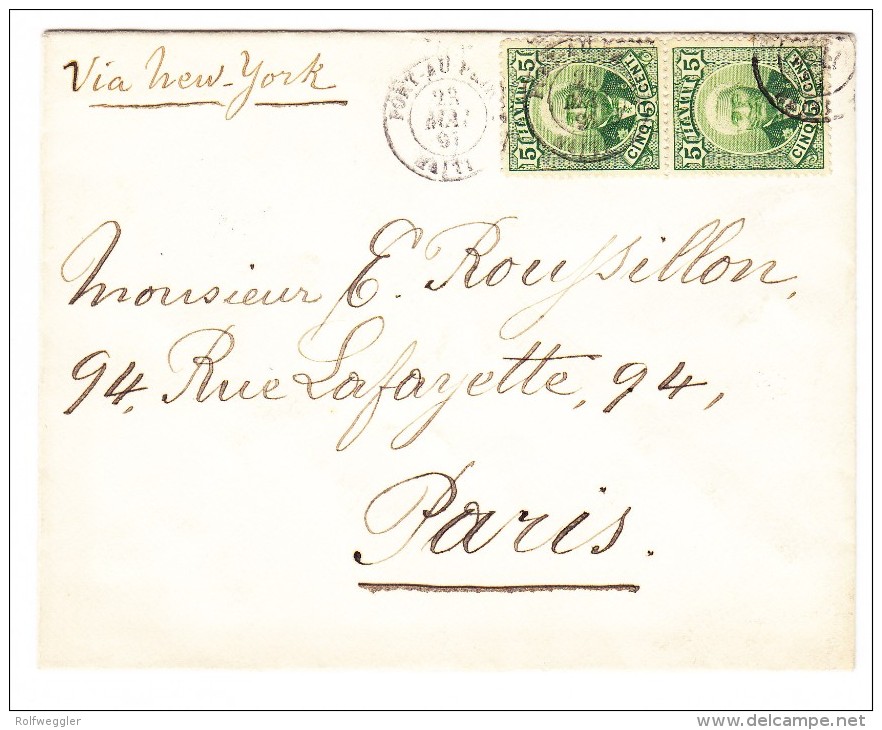 Via New-York
PORT AU
23
MAI
97
HAÏTI
5 HAYTI 5
CINQ CENT.
5 HAYTI 5
CINQ CENT.
Monsieur E. Roussillon,
94, Rue Lafayette, 94,
Paris.
Rolfweggler
delcampe.net